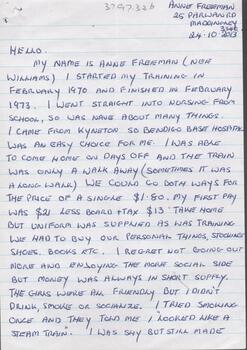 3797.32b
ANNE FREEMAN
25 PARLWAN RD
MADDINGLEY
3340
24·10·2013
HELLO.
MY NAME IS ANNE FREEMAN (NEE
WILLIAMS) I STARTED MY TRAINING IN
FEBRUARY 1970 AND FINISHED IN FEBRUARY
1973. I WENT STRAIGHT INTO NURSING FROM
SCHOOL, SO WAS NAIVE ABOUT MANY THINGS.
I CAME FROM KYNETON SO BENDIGO BASE HOSPITAL
WAS AN EASY CHOICE FOR ME. I WAS ABLE
TO COME HOME ON DAYS OFF AND THE TRAIN
WAS ONLY A WALK AWAY (SOMETIMES IT WAS
A LONG WALK) WE COULD GO BOTH WAYS FOR
THE PRICE OF A SINGLE $1·80. MY FIRST PAY
WAS $21 LESS BOARD + TAX $13 TAKE HOME
BUT UNIFORM WAS SUPPLIED AS WAS TRAINING
WE HAD TO BUY OUR PERSONAL THINGS, STOCKINGS
SHOES, BOOKS ETC. I REGRET NOT GOING OUT
MORE AND ENJOYING THE MORE SOCIAL SIDE
BUT MONEY WAS ALWAYS IN SHORT SUPPLY.
THE GIRLS WERE ALL FRIENDLY BUT I DIDN'T
DRINK, SMOKE OR SOCIALIZE. I TRIED SMOKING
ONCE AND THEY TOLD ME I "LOOKED LIKE A
STEAM TRAIN". I WAS SHY BUT STILL MADE